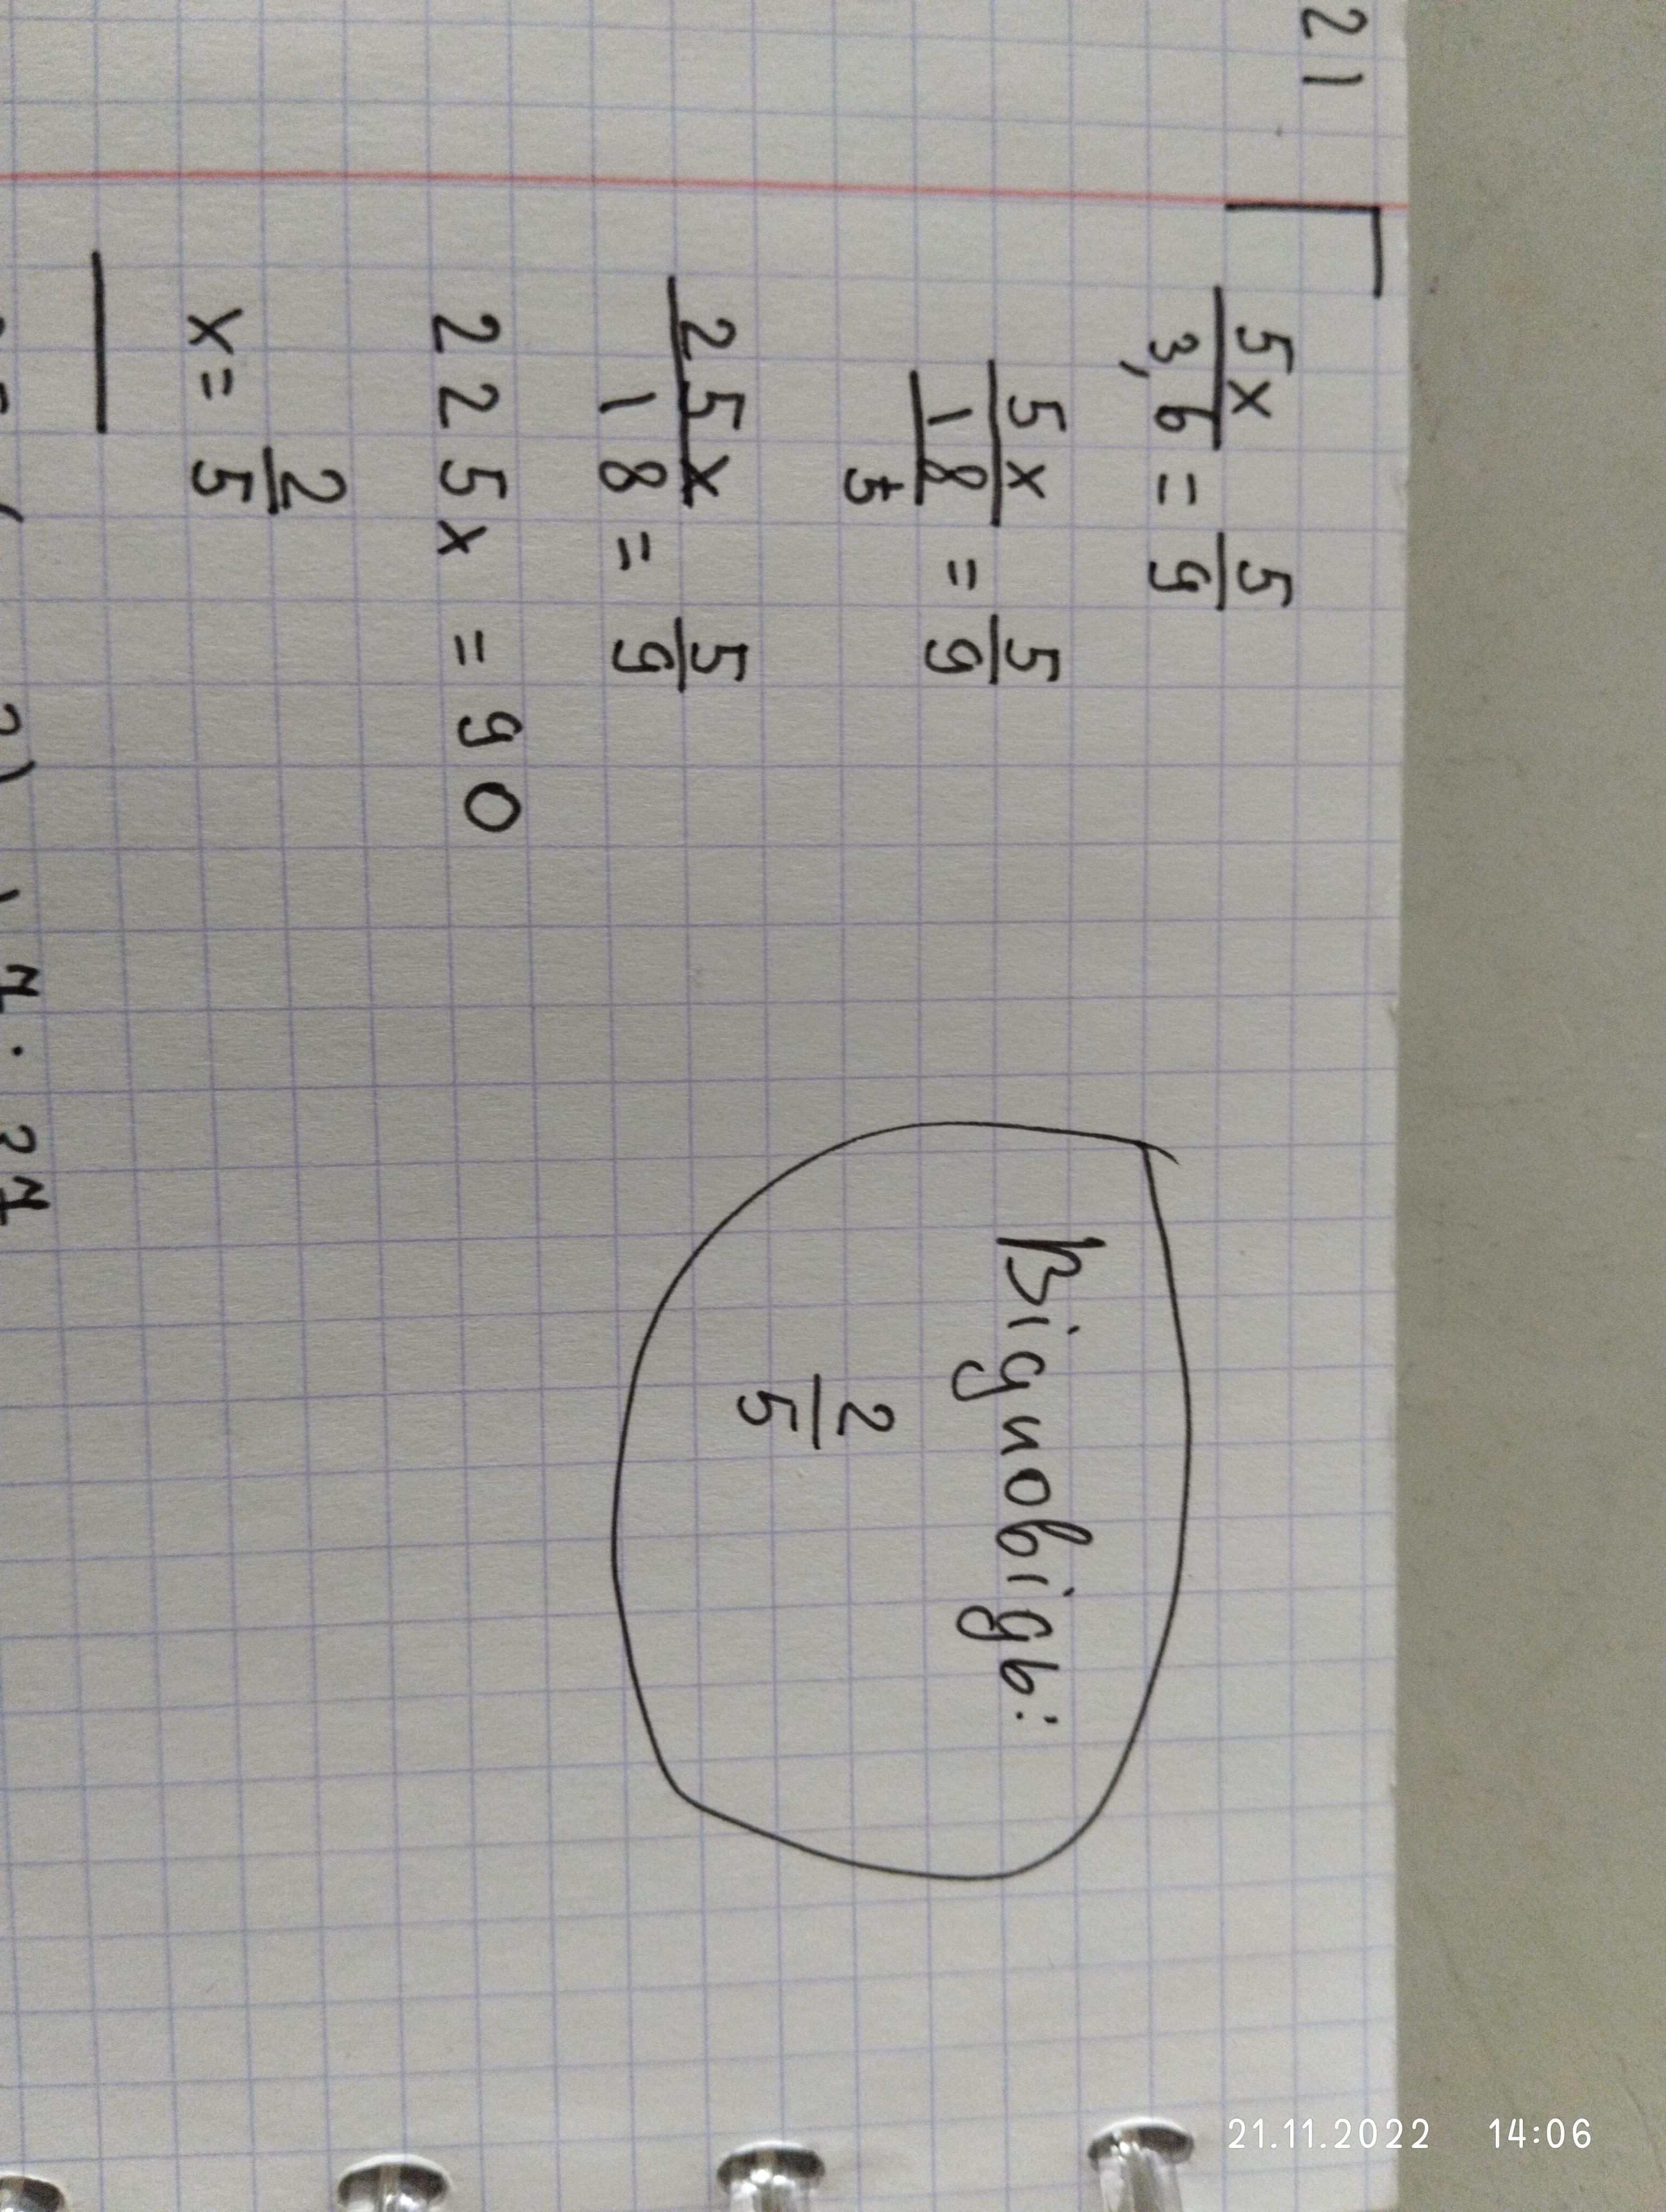 21
5x/3,6 = 5/9
5x/(18/5) = 5/9
25x/18 = 5/9
225x = 90
x = 2/5
Відповідь:
2/5
21.11.2022 14:06